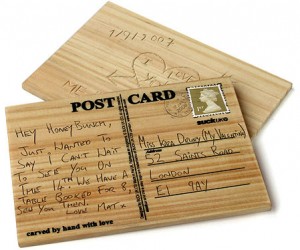 1/9/2007
I LOVE
ME
POST CARD
suck uk
HEY HONEYBUNCH,
JUST WANTED TO
SAY I CAN'T WAIT
TO SEE YOU ON
THE 14TH. WE HAVE A
TABLE BOOKED FOR 8,
SEE YOU THEN. LOVE MAT x
MRS VERA DRURY (MY VALENTINE)
52 SAINTS ROAD
LONDON
E1 9AY
carved by hand with love